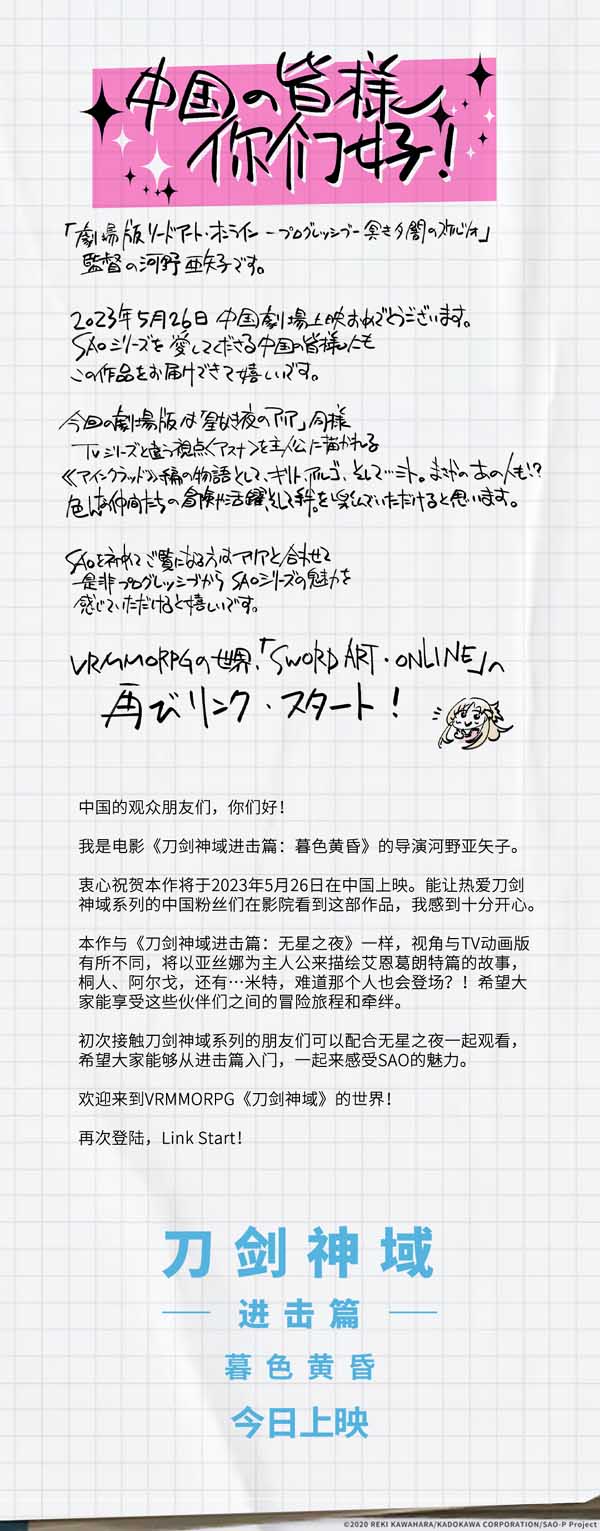 中国の皆様
你们好！
「劇場版ソードアート・オンライン －プログレッシブ－ 冥き夕闇のスケルツォ」
監督の河野亜矢子です。
2023年5月26日 中国劇場上映おめでとうございます。
SAOシリーズを愛してくださる中国の皆様にも
この作品をお届けできて嬉しいです。
今回の劇場版は「星なき夜のアリア」同様
TVシリーズと違う視点〈アスナ〉を主人公に描かれる
《アインクラッド》編の物語として、キリト、アルゴ、そして…ミト。まさかのあの人も!?
色んな仲間たちの冒険や活躍、そして絆。を楽しんでいただけると思います。
SAOを初めてご覧になる方はアリアと合わせて
是非プログレッシブからSAOシリーズの魅力を
感じていただけると嬉しいです。
VRMMORPGの世界、「SWORD ART・ONLINE」へ
再びリンク・スタート！
中国的观众朋友们，你们好！
我是电影《刀剑神域进击篇：暮色黄昏》的导演河野亚矢子。
衷心祝贺本作将于2023年5月26日在中国上映。能让热爱刀剑
神域系列的中国粉丝们在影院看到这部作品，我感到十分开心。
本作与《刀剑神域进击篇：无星之夜》一样，视角与TV动画版
有所不同，将以亚丝娜为主人公来描绘艾恩葛朗特篇的故事，
桐人、阿尔戈，还有…米特，难道那个人也会登场？！希望大
家能享受这些伙伴们之间的冒险旅程和牵绊。
初次接触刀剑神域系列的朋友们可以配合无星之夜一起观看，
希望大家能够从进击篇入门，一起来感受SAO的魅力。
欢迎来到VRMMORPG《刀剑神域》的世界！
再次登陆，Link Start！
刀剑神域
进击篇
暮色黄昏
今日上映
©2020 REKI KAWAHARA/KADOKAWA CORPORATION/SAO-P Project